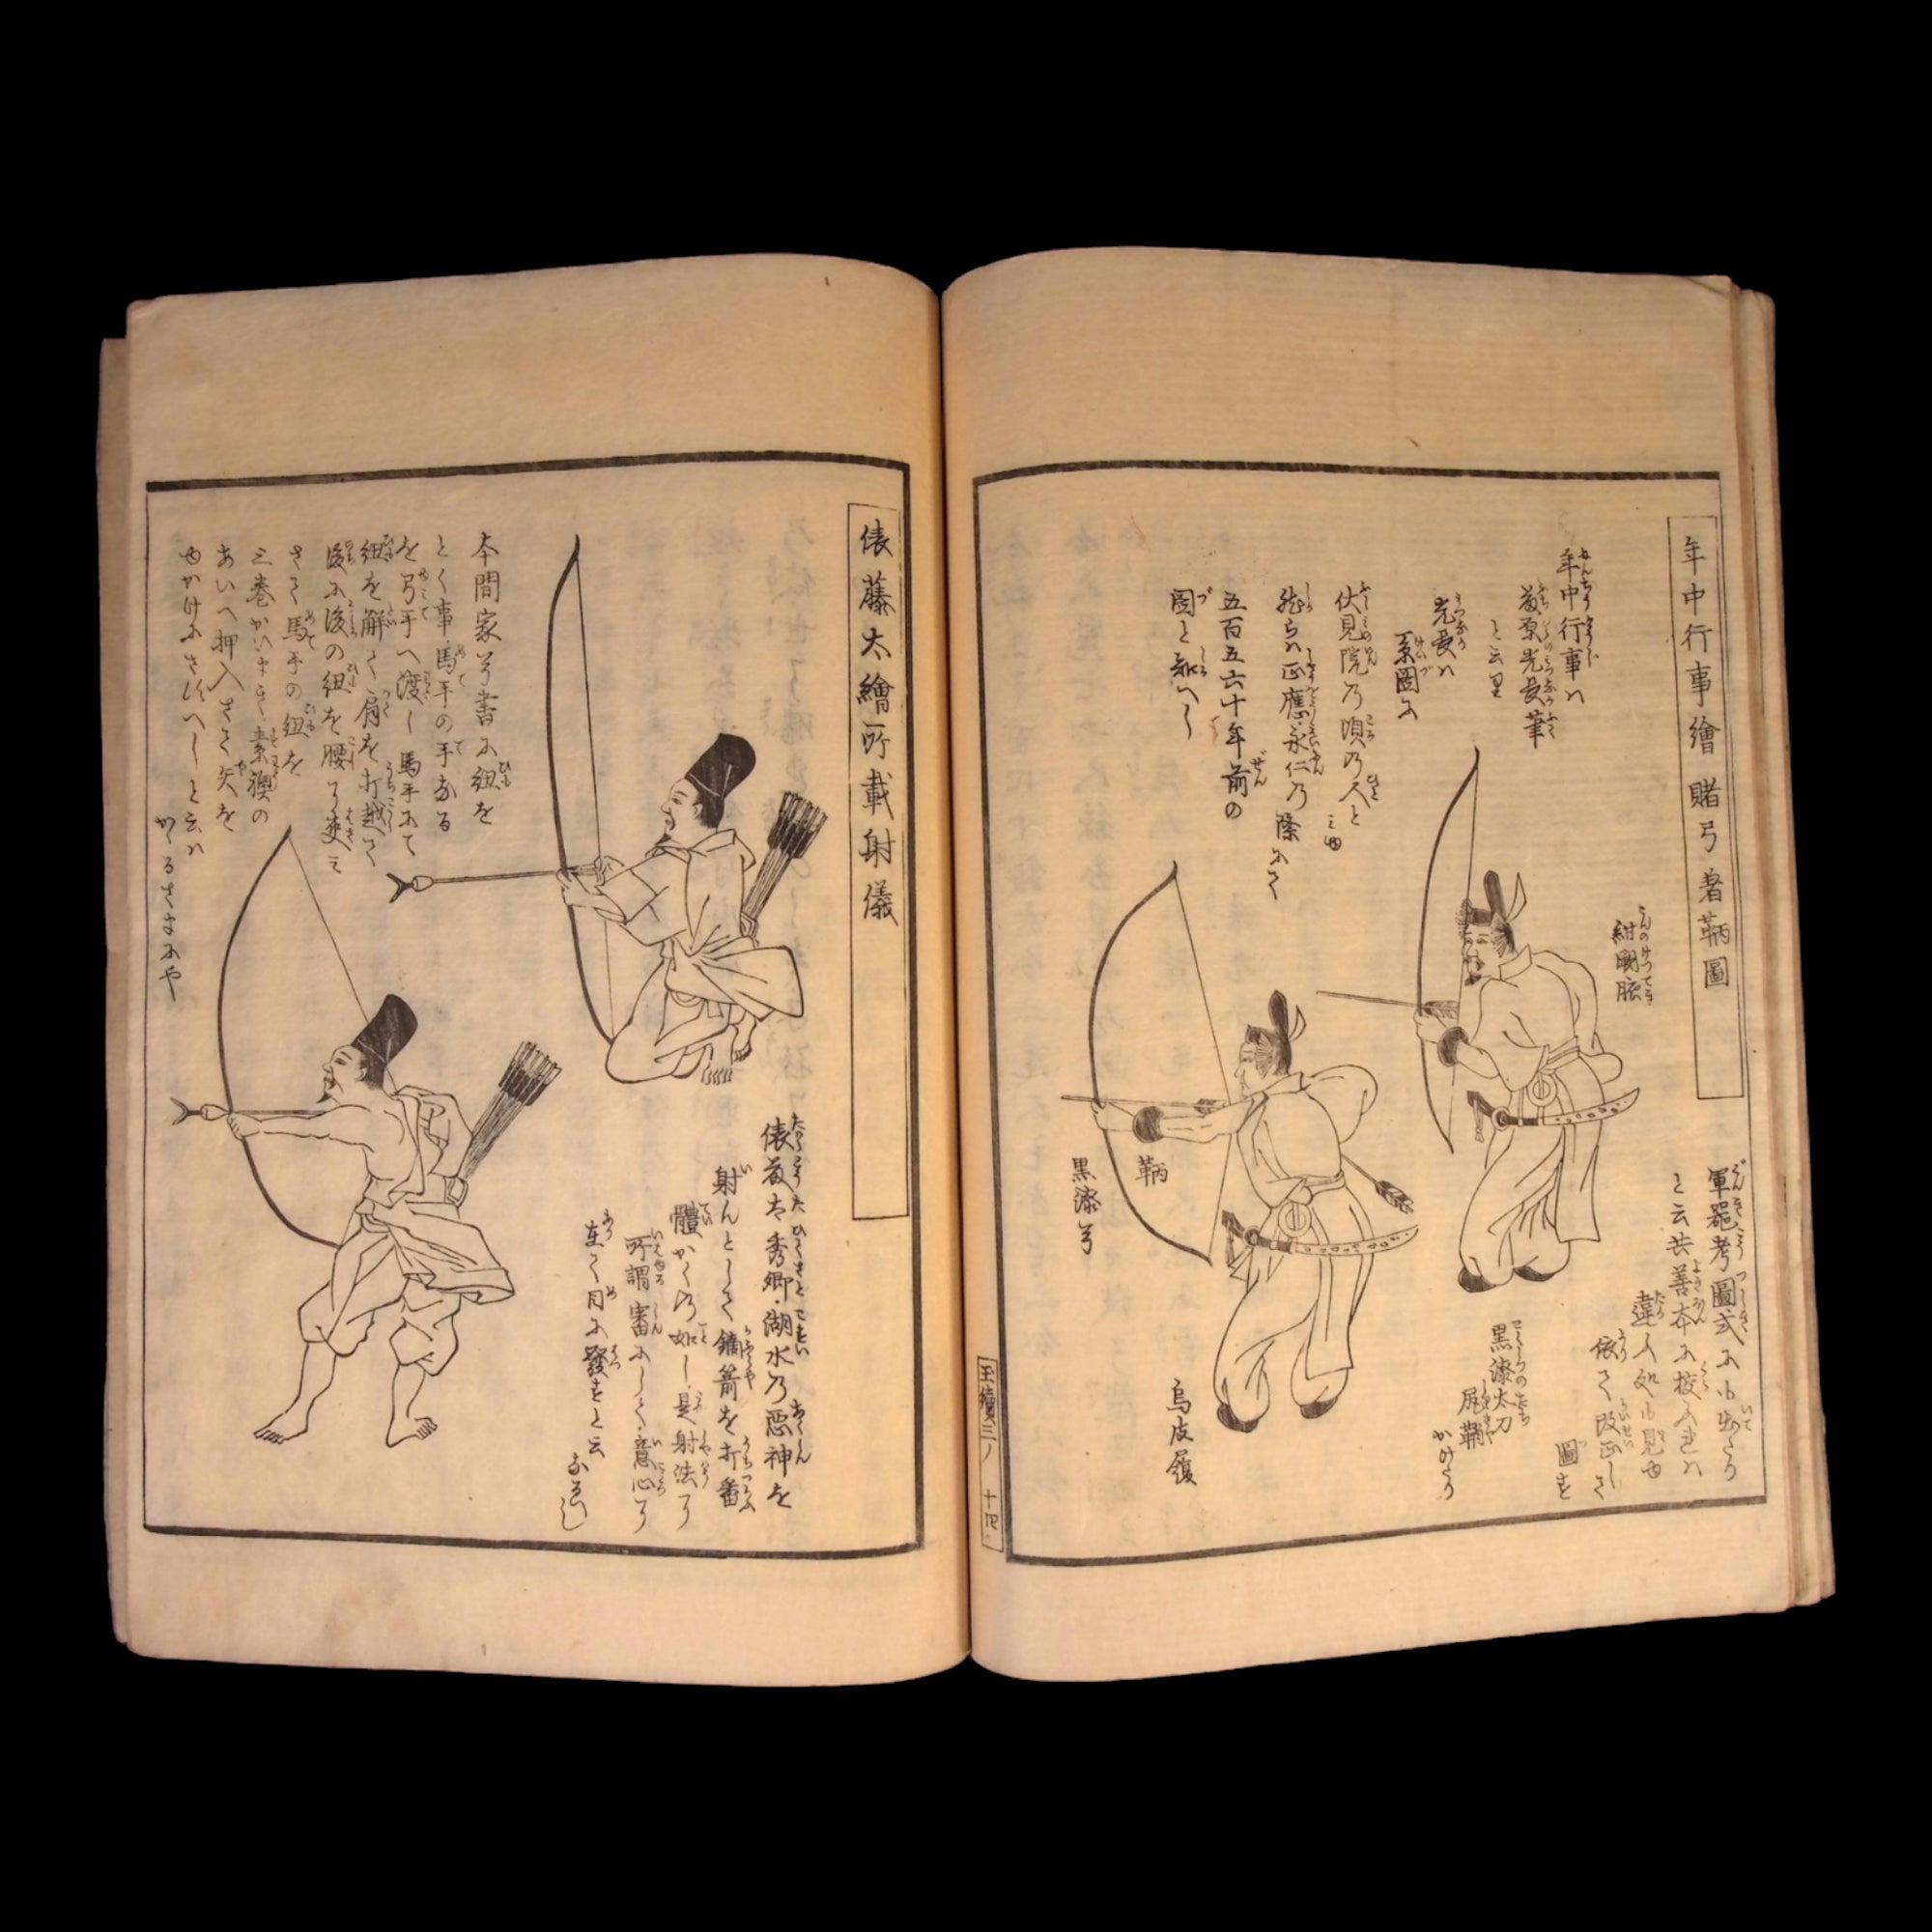 年中行事繪賭弓者鞆圖
軍器考圖式に出たり
と云共善本に挍入れハ
違ふ処も見ゆ
依て改正しさ
圖を
紺闕腋
年中行事ハ
藤原光長筆
と云里
光長ハ
系圖に
伏見院乃頃乃人と
みゆ
然らハ正應永仁乃際にて
五百五六十年前の
圖と知へし
黒漆太刀
尻鞘
かけたり
鞆
黒漆弓
烏皮履
玉續三ノ 十四
俵藤太繪所載射儀
俵藤太秀郷湖水乃惡神を
射んとして鏑箭を打番
體かくの如し是射法に
所謂審にして意心に
在て目に發すと云
なるへし
本間家弓書に紐を
とく事馬手の手なる
を弓手へ渡し馬手にて
紐を解て肩を打越て
後に後の紐を腰に挾み
さて馬手の紐を
三巻かいまき素襖の
あいへ押入さて矢を
ゆかけにさすへしと云ハ
かくるさまにや